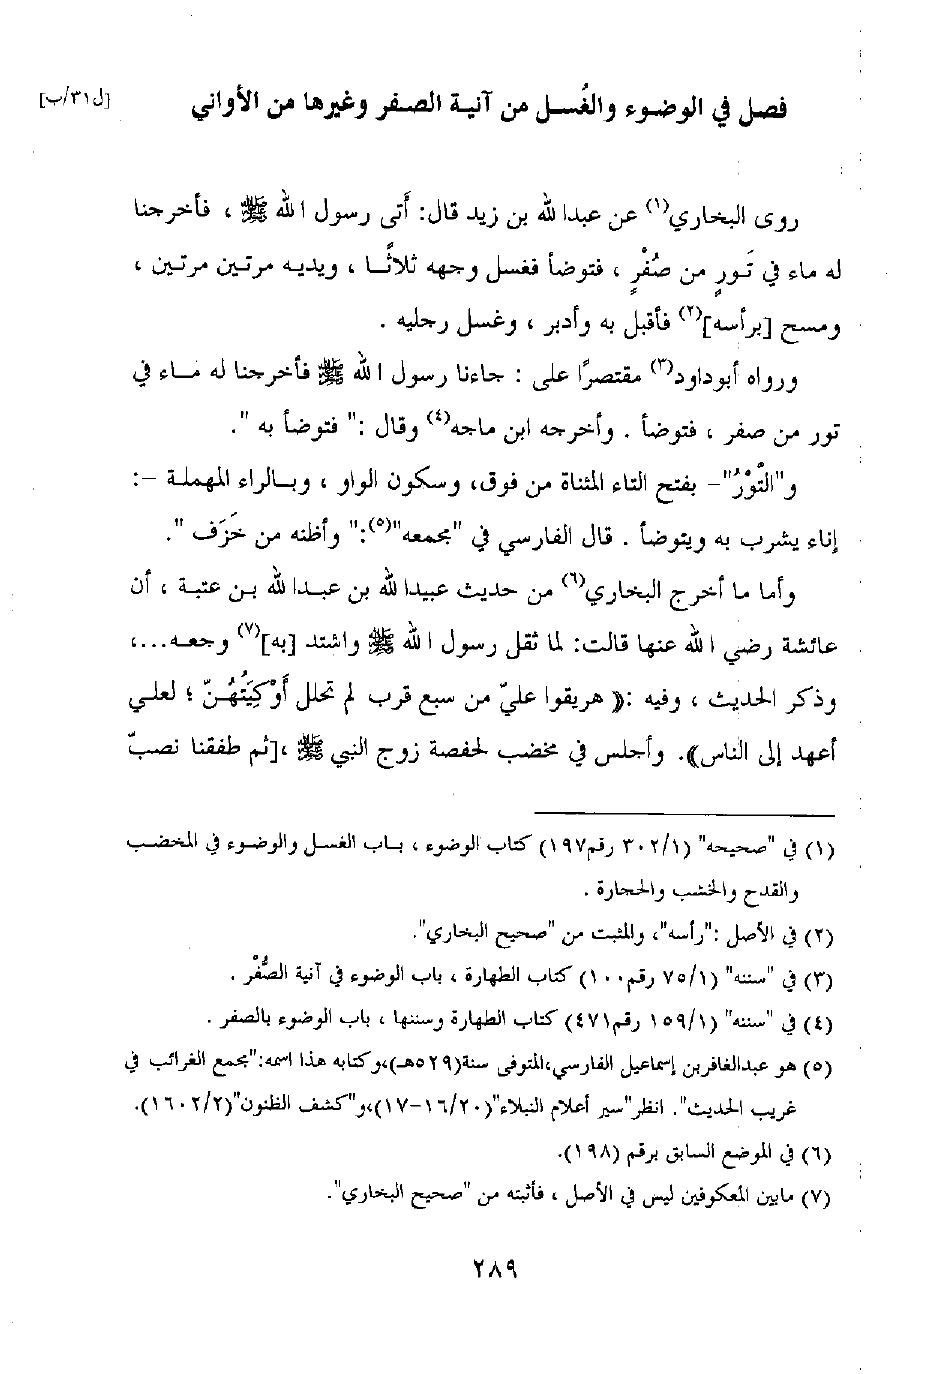 فصل في الوضوء والغُسل من آنية الصفر وغيرها من الأواني [ل٣١/ب]
روى البخاري(١) عن عبدا لله بن زيد قال: أَتى رسول ا لله ﷺ ، فأخرجنا
له ماء في تَورٍ من صُفْرٍ ، فتوضأ فغسل وجهه ثلاثًا ، ويديه مرتين مرتين ،
ومسح [برأسه](٢) فأقبل به وأدبر ، وغسل رجليه .
ورواه أبوداود(٣) مقتصرًا على : جاءنا رسول ا لله ﷺ فأخرجنا له ماء في
تور من صفر ، فتوضأ . وأخرجه ابن ماجه(٤) وقال :" فتوضأ به ".
و"التَّوْرُ"- بفتح التاء المثناة من فوق، وسكون الواو ، وبالراء المهملة -:
إناء يشرب به ويتوضأ . قال الفارسي في "مجمعه"(٥):" وأظنه من خَزَف ".
وأما ما أخرج البخاري(٦) من حديث عبيدا لله بن عبدا لله بن عتبة ، أن
عائشة رضي ا لله عنها قالت: لما ثقل رسول ا لله ﷺ واشتد [به](٧) وجعه...،
وذكر الحديث ، وفيه :(( هريقوا عليّ من سبع قرب لم تحلل أَوْكِيَتُهُنّ ؛ لعلي
أعهد إلى الناس)). وأجلس في مخضب لحفصة زوج النبي ﷺ ،[ثم طفقنا نصبّ
(١) في "صحيحه" (٣٠٢/١ رقم١٩٧) كتاب الوضوء ، باب الغسل والوضوء في المخضب
والقدح والخشب والحجارة .
(٢) في الأصل :"رأسه"، والمثبت من "صحيح البخاري".
(٣) في "سننه" (٧٥/١ رقم١٠٠) كتاب الطهارة ، باب الوضوء في آنية الصُّفْر .
(٤) في "سننه" (١٥٩/١ رقم٤٧١) كتاب الطهارة وسننها ، باب الوضوء بالصفر .
(٥) هو عبدالغافربن إسماعيل الفارسي،المتوفى سنة(٥٢٩هـ)،وكتابه هذا اسمه:"مجمع الغرائب في
غريب الحديث". انظر"سير أعلام النبلاء"(١٦/٢٠-١٧)،و"كشف الظنون"(١٦٠٢/٢).
(٦) في الموضع السابق برقم (١٩٨).
(٧) مابين المعكوفين ليس في الأصل ، فأثبته من "صحيح البخاري".
٢٨٩